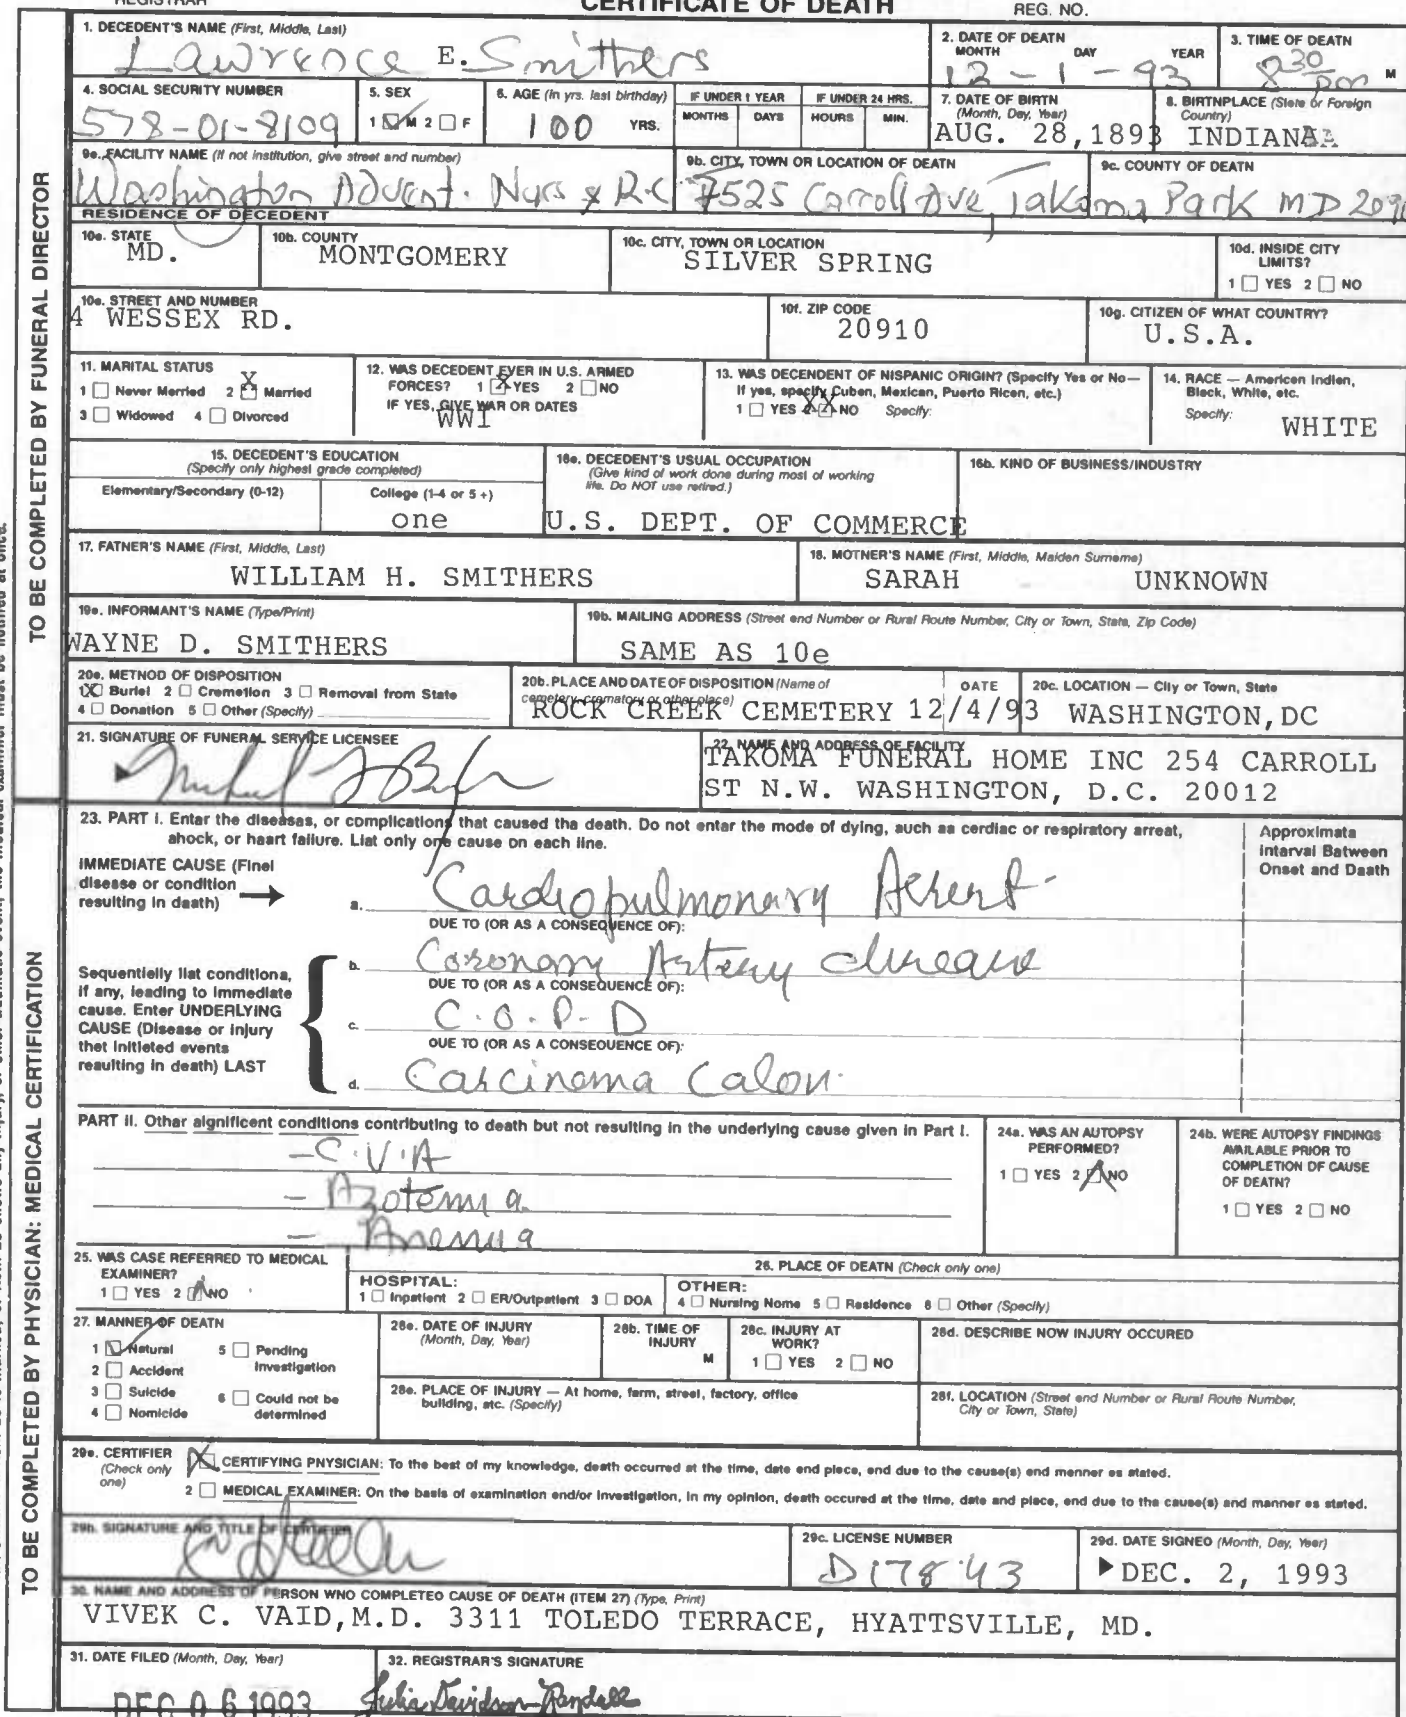 REGISTRAR CERTIFICATE OF DEATH REG. NO.
1. DECEDENT'S NAME (First, Middle, Last)
Lawrence E. Smithers
2. DATE OF DEATH
MONTH DAY YEAR
12-1-93
3. TIME OF DEATH
8 30 pm M
4. SOCIAL SECURITY NUMBER
578-01-8109
5. SEX
1 M 2 F
6. AGE (In yrs. last birthday)
100 YRS.
IF UNDER 1 YEAR
MONTHS DAYS
IF UNDER 24 HRS.
HOURS MIN.
7. DATE OF BIRTH
(Month, Day, Year)
AUG. 28,1893
8. BIRTHPLACE (State or Foreign
Country)
INDIANA
9a. FACILITY NAME (If not institution, give street and number)
Washington Advent. Nurs & R.C
9b. CITY, TOWN OR LOCATION OF DEATH
7525 Carroll Ave, Takoma Park MD
9c. COUNTY OF DEATH
RESIDENCE OF DECEDENT
10a. STATE
MD.
10b. COUNTY
MONTGOMERY
10c. CITY, TOWN OR LOCATION
SILVER SPRING
10d. INSIDE CITY
LIMITS?
1 YES 2 NO
10e. STREET AND NUMBER
4 WESSEX RD.
10f. ZIP CODE
20910
10g. CITIZEN OF WHAT COUNTRY?
U.S.A.
11. MARITAL STATUS
1 Never Married 2 X Married
3 Widowed 4 Divorced
12. WAS DECEDENT EVER IN U.S. ARMED
FORCES? 1 X YES 2 NO
IF YES, GIVE WAR OR DATES
WWI
13. WAS DECENDENT OF HISPANIC ORIGIN? (Specify Yes or No—
If yes, specify Cuben, Mexican, Puerto Ricen, etc.)
1 YES 2 XX NO Specify:
14. RACE — American Indien,
Bleck, White, etc.
Specify:
WHITE
15. DECEDENT'S EDUCATION
(Specify only highest grade completed)
Elementary/Secondary (0-12) College (1-4 or 5 +)
one
16a. DECEDENT'S USUAL OCCUPATION
(Give kind of work done during most of working
life. Do NOT use retired.)
U.S. DEPT. OF COMMERCE
16b. KIND OF BUSINESS/INDUSTRY
17. FATHER'S NAME (First, Middle, Last)
WILLIAM H. SMITHERS
18. MOTHER'S NAME (First, Middle, Maiden Surname)
SARAH UNKNOWN
19a. INFORMANT'S NAME (Type/Print)
WAYNE D. SMITHERS
19b. MAILING ADDRESS (Street end Number or Rural Route Number, City or Town, State, Zip Code)
SAME AS 10e
20a. METHOD OF DISPOSITION
1 X Buriel 2 Cremetion 3 Removal from State
4 Donation 5 Other (Specify)
20b. PLACE AND DATE OF DISPOSITION (Name of
cemetery, crematory or other place)
DATE
ROCK CREEK CEMETERY 12/4/93
20c. LOCATION — City or Town, State
WASHINGTON,DC
21. SIGNATURE OF FUNERAL SERVICE LICENSEE
22. NAME AND ADDRESS OF FACILITY
TAKOMA FUNERAL HOME INC 254 CARROLL
ST N.W. WASHINGTON, D.C. 20012
23. PART I. Enter the diseases, or complications that caused the death. Do not enter the mode of dying, such as cerdiac or respiratory arreat,
ahock, or heart failure. Liat only one cause on each line.
Approximata
Intarval Batween
Onset and Daath
IMMEDIATE CAUSE (Finel
disease or condition
resulting in daath)
a. Cardiopulmonary Arrest
DUE TO (OR AS A CONSEQUENCE OF):
b. Coronary Artery disease
DUE TO (OR AS A CONSEQUENCE OF):
c. C.O.P.D
DUE TO (OR AS A CONSEQUENCE OF):
d. Carcinoma Colon
Sequentielly liat conditiona,
if any, leading to immediate
cause. Enter UNDERLYING
CAUSE (Disease or injury
thet initieted events
reaulting in death) LAST
PART II. Other aignificent conditions contributing to death but not resulting in the underlying cause given in Part I.
-C.V.A
- Azotemia
- Anemia
24a. WAS AN AUTOPSY
PERFORMED?
1 YES 2 NO
24b. WERE AUTOPSY FINDINGS
AVAILABLE PRIOR TO
COMPLETION OF CAUSE
OF DEATH?
1 YES 2 NO
25. WAS CASE REFERRED TO MEDICAL
EXAMINER?
1 YES 2 NO
26. PLACE OF DEATH (Check only one)
HOSPITAL:
1 Inpatient 2 ER/Outpatient 3 DOA
OTHER:
4 Nursing Home 5 Residence 6 Other (Specify)
27. MANNER OF DEATH
1 Natural 5 Pending
Investigation
2 Accident
3 Suicide 6 Could not be
determined
4 Homicide
28a. DATE OF INJURY
(Month, Day, Year)
28b. TIME OF
INJURY
M
28c. INJURY AT
WORK?
1 YES 2 NO
28d. DESCRIBE HOW INJURY OCCURED
28e. PLACE OF INJURY — At home, farm, street, factory, office
building, atc. (Specify)
28f. LOCATION (Street end Number or Rural Route Number,
City or Town, State)
29a. CERTIFIER
(Check only
one)
X CERTIFYING PHYSICIAN: To the best of my knowledge, death occurred at the time, date end plece, end due to the cause(s) end menner es stated.
2 MEDICAL EXAMINER: On the basis of examination end/or investigation, in my opinion, death occured at the time, date and place, end due to the cause(s) and manner es stated.
29b. SIGNATURE AND TITLE OF CERTIFIER
29c. LICENSE NUMBER
D17843
29d. DATE SIGNED (Month, Dey, Year)
DEC. 2, 1993
30. NAME AND ADDRESS OF PERSON WHO COMPLETED CAUSE OF DEATH (ITEM 27) (Type, Print)
VIVEK C. VAID,M.D. 3311 TOLEDO TERRACE, HYATTSVILLE, MD.
31. DATE FILED (Month, Day, Year)
DEC 06 1993
32. REGISTRAR'S SIGNATURE
Julia Davidson-Randall
TO BE COMPLETED BY FUNERAL DIRECTOR
TO BE COMPLETED BY PHYSICIAN: MEDICAL CERTIFICATION